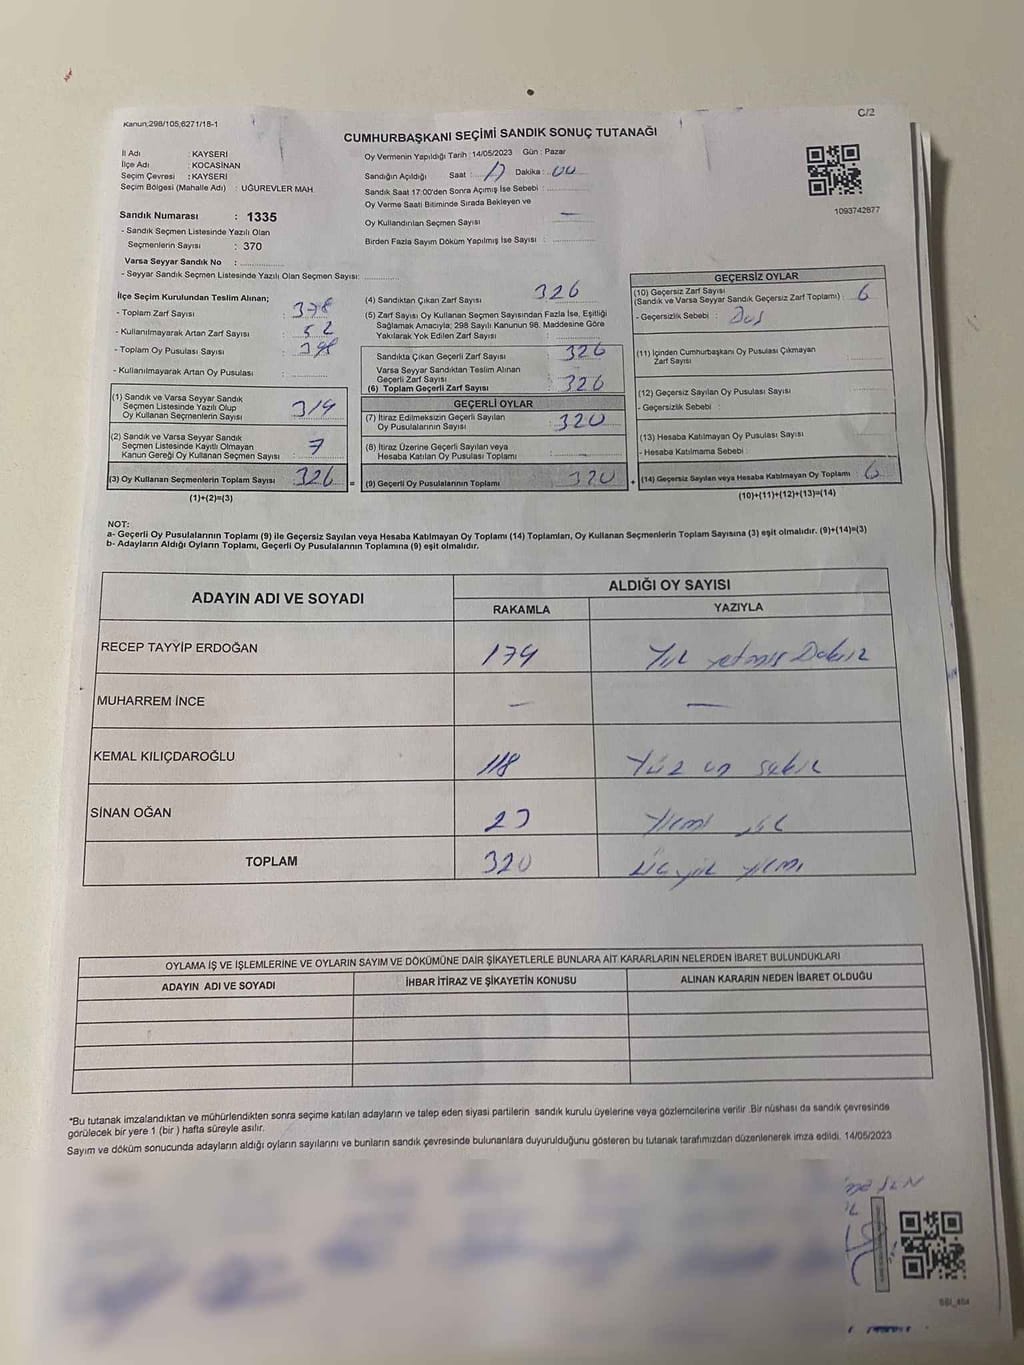 C/2
Kanun,298/105,6271/18-1
CUMHURBAŞKANI SEÇİMİ SANDIK SONUÇ TUTANAĞI
İl Adı : KAYSERİ
İlçe Adı : KOCASİNAN
Seçim Çevresi : KAYSERİ
Seçim Bölgesi (Mahalle Adı) : UĞUREVLER MAH.
Sandık Numarası : 1335
- Sandık Seçmen Listesinde Yazılı Olan
Seçmenlerin Sayısı : 370
Varsa Seyyar Sandık No :
- Seyyar Sandık Seçmen Listesinde Yazılı Olan Seçmen Sayısı:
Oy Vermenin Yapıldığı Tarih :14/05/2023 Gün : Pazar
Sandığın Açıldığı Saat : 17 Dakika : 00
Sandık Saat 17:00'den Sonra Açımış İse Sebebi :
Oy Verme Saati Bitiminde Sırada Bekleyen ve
Oy Kullandırılan Seçmen Sayısı —
Birden Fazla Sayım Döküm Yapılmış İse Sayısı :
1093742877
İlçe Seçim Kurulundan Teslim Alınan;
- Toplam Zarf Sayısı : 378
- Kullanılmayarak Artan Zarf Sayısı : 52
- Toplam Oy Pusulası Sayısı :
- Kullanılmayarak Artan Oy Pusulası :
(1) Sandık ve Varsa Seyyar Sandık
Seçmen Listesinde Yazılı Olup
Oy Kullanan Seçmenlerin Sayısı : 319
(2) Sandık ve Varsa Seyyar Sandık
Seçmen Listesinde Kayıtlı Olmayan
Kanun Gereği Oy Kullanan Seçmen Sayısı : 7
(3) Oy Kullanan Seçmenlerin Toplam Sayısı : 326
(1)+(2)=(3)
(4) Sandıktan Çıkan Zarf Sayısı 326
(5) Zarf Sayısı Oy Kullanan Seçmen Sayısından Fazla İse, Eşitliği
Sağlamak Amacıyla; 298 Sayılı Kanunun 98. Maddesine Göre
Yakılarak Yok Edilen Zarf Sayısı :
Sandıkta Çıkan Geçerli Zarf Sayısı : 326
Varsa Seyyar Sandıktan Teslim Alınan
Geçerli Zarf Sayısı
(6) Toplam Geçerli Zarf Sayısı : 326
GEÇERLİ OYLAR
(7) İtiraz Edilmeksizin Geçerli Sayılan
Oy Pusulalarının Sayısı : 320
(8) İtiraz Üzerine Geçerli Sayılan veya
Hesaba Katılan Oy Pusulası Toplamı :
(9) Geçerli Oy Pusulalarının Toplamı 320
GEÇERSİZ OYLAR
(10) Geçersiz Zarf Sayısı
(Sandık ve Varsa Seyyar Sandık Geçersiz Zarf Toplamı) : 6
- Geçersizlik Sebebi :
(11) İçinden Cumhurbaşkanı Oy Pusulası Çıkmayan
Zarf Sayısı
(12) Geçersiz Sayılan Oy Pusulası Sayısı
- Geçersizlik Sebebi :
(13) Hesaba Katılmayan Oy Pusulası Sayısı
- Hesaba Katılmama Sebebi
(14) Geçersiz Sayılan veya Hesaba Katılmayan Oy Toplamı : 6
(10)+(11)+(12)+(13)=(14)
NOT:
a- Geçerli Oy Pusulalarının Toplamı (9) ile Geçersiz Sayılan veya Hesaba Katılmayan Oy Toplamı (14) Toplamları, Oy Kullanan Seçmenlerin Toplam Sayısına (3) eşit olmalıdır. (9)+(14)=(3)
b- Adayların Aldığı Oyların Toplamı, Geçerli Oy Pusulalarının Toplamına (9) eşit olmalıdır.
ADAYIN ADI VE SOYADI ALDIĞI OY SAYISI
RAKAMLA YAZIYLA
RECEP TAYYİP ERDOĞAN 179 Yüz yetmiş Dokuz
MUHARREM İNCE — —
KEMAL KILIÇDAROĞLU 118 Yüz on sekiz
SİNAN OĞAN 23 Yirmi üç
TOPLAM 320 üç yüz yirmi
OYLAMA İŞ VE İŞLEMLERİNE VE OYLARIN SAYIM VE DÖKÜMÜNE DAİR ŞİKAYETLERLE BUNLARA AİT KARARLARIN NELERDEN İBARET BULUNDUKLARI
ADAYIN ADI VE SOYADI İHBAR İTİRAZ VE ŞİKAYETİN KONUSU ALINAN KARARIN NEDEN İBARET OLDUĞU
*Bu tutanak imzalandıktan ve mühürlendikten sonra seçime katılan adayların ve talep eden siyasi partilerin sandık kurulu üyelerine veya gözlemcilerine verilir .Bir nüshası da sandık çevresinde
görülecek bir yere 1 (bir ) hafta süreyle asılır.
Sayım ve döküm sonucunda adayların aldığı oyların sayılarını ve bunların sandık çevresinde bulunanlara duyurulduğunu gösteren bu tutanak tarafımızdan düzenlenerek imza edildi. 14/05/2023